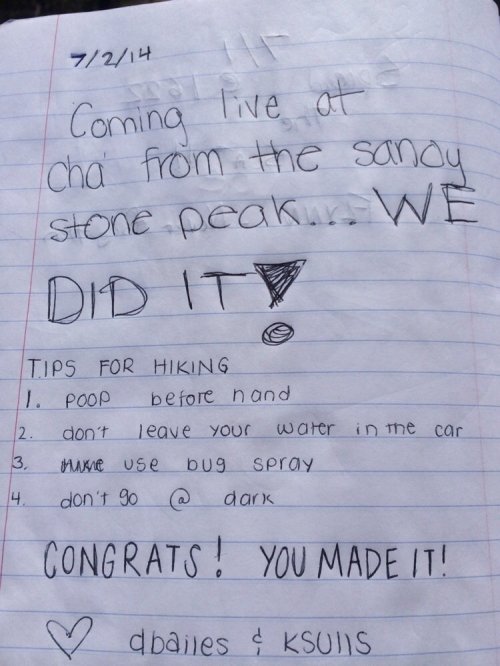 7/2/14
Coming live at
cha from the sandy
stone peak... WE
DID IT!
TIPS FOR HIKING
1. POOP before hand
2. don't leave your water in the car
3. use bug spray
4. don't go @ dark
CONGRATS! YOU MADE IT!
♡ dbailes &